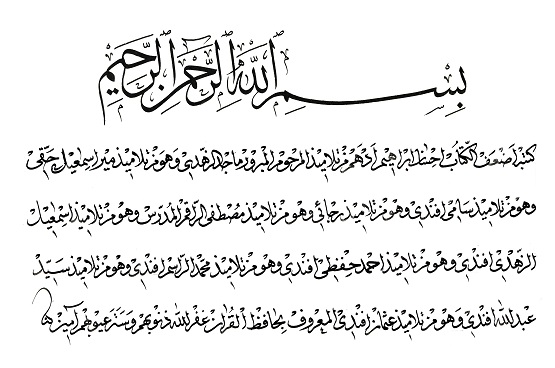 بسم الله الرحمن الرحيم
كتبه أضعف الكتاب الحافظ إبراهيم أدهم من تلاميذ المرحوم المبرور ماجد الزهدي وهو من تلاميذ مير اسمعيل حقي
وهو من تلاميذ سامي افندي وهو من تلاميذ رجائي وهو من تلاميذ مصطفى الراقم المدرس وهو من تلاميذ اسمعيل
الزهدي افندي وهو من تلاميذ احمد حفظي افندي وهو من تلاميذ محمد الراسم افندي وهو من تلاميذ سيد
عبد الله افندي وهو من تلاميذ عثمان افندي المعروف بحافظ القرآن غفر الله ذنوبهم وستر عيوبهم آمين